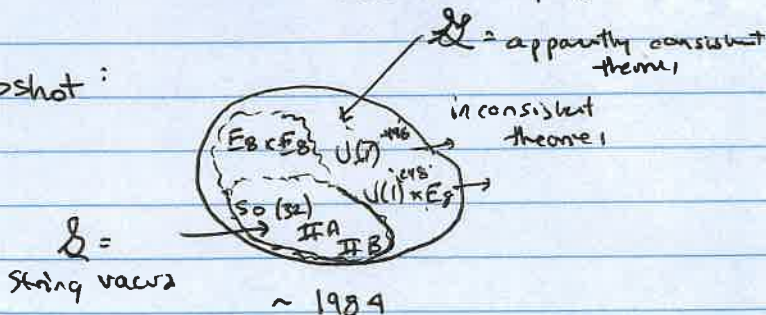 pshot :
𝒢 = apparently consistent
theories
inconsistent
theories
E8 x E8 U(1)^496
U(1)^248 x E8
SO(32)
IIA
IIB
𝒮 =
String vacua
~ 1984